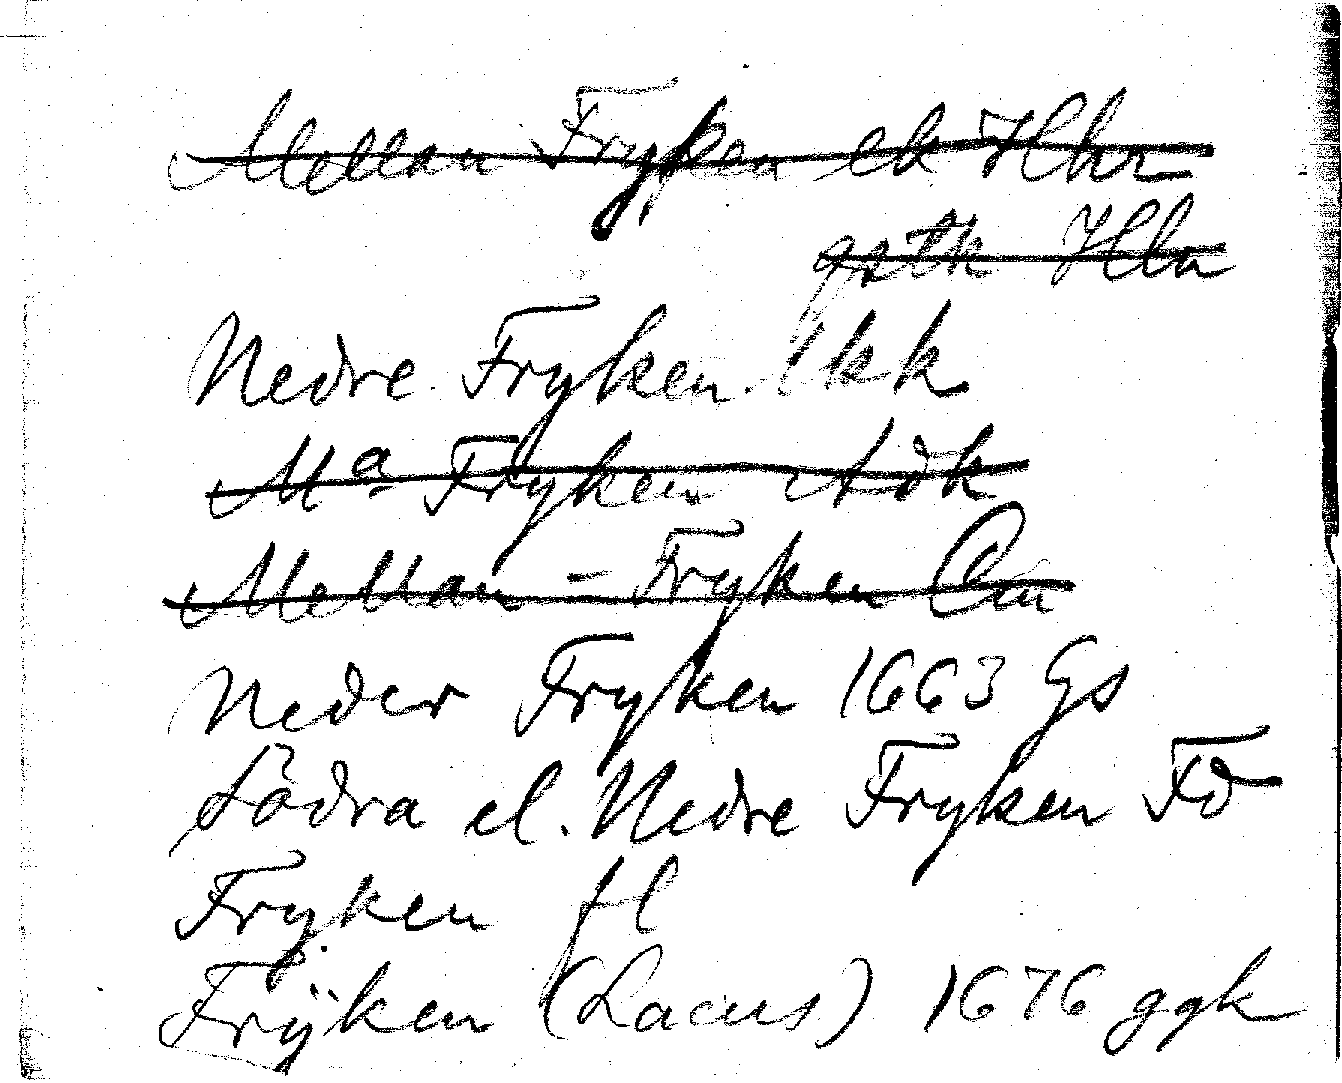 Mellan Fryken ek Hbr
gstk Hbr
Nedre Fryken lkk
Ma Fryken Adk
Mellan-Fryken Cm
Neder Fryken 1663 Gs
Södra el. Nedre Fryken Fd
Fryken fl
Frÿken (Lacus) 1676 ggk